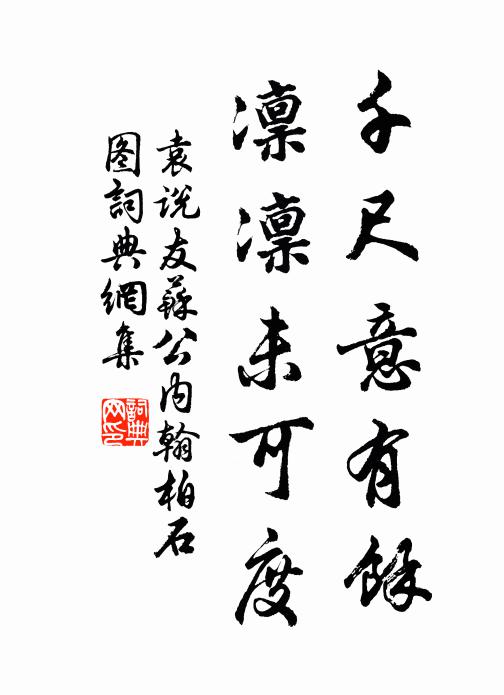 千尺意有餘
凜凜未可度
袁说友蘇公内翰柏石
图詞典網集
詞典
网印